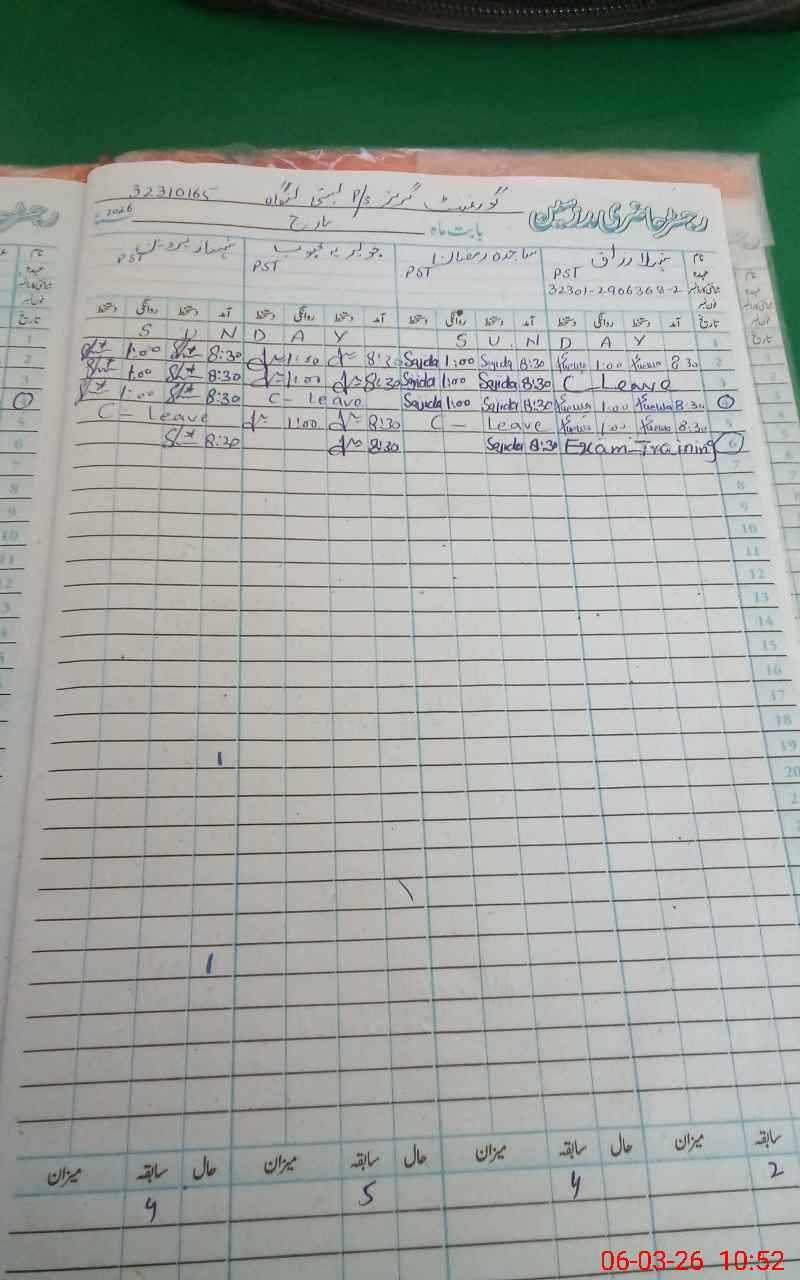 رجسٹر حاضری مدرسین گورنمنٹ گرلز P/S بستی 32310165
بابت ماہ مارچ 2026ء
نام شہلا رزاق ساجدہ رمضان جویریہ محبوب شہناز پروین
عہدہ PST PST PST PST
شناختی کارڈ نمبر 32301-2906363-2
فون نمبر
تاریخ آمد دستخط روانگی دستخط آمد دستخط روانگی دستخط آمد دستخط روانگی دستخط آمد دستخط روانگی دستخط
1 S U N D A Y S U N D A Y
1:00 8:30 1:00 8:30 Sajida 1:00 Sajida 8:30 1:00 8:30 2
1:00 8:30 1:00 8:30 Sajida 1:00 Sajida 8:30 C Leave 3
1:00 8:30 C - leave Sajida 1:00 Sajida 8:30 1:00 8:30 4
C - Leave 1:00 8:30 C - Leave 1:00 8:30 5
8:30 8:30 Sajida 8:30 Exam Training 6
7
8
9
10
11
12
13
14
15
16
17
18
19
20
سابقہ میزان حال سابقہ میزان حال سابقہ میزان حال سابقہ میزان
2 4 5 4
06-03-26 10:52